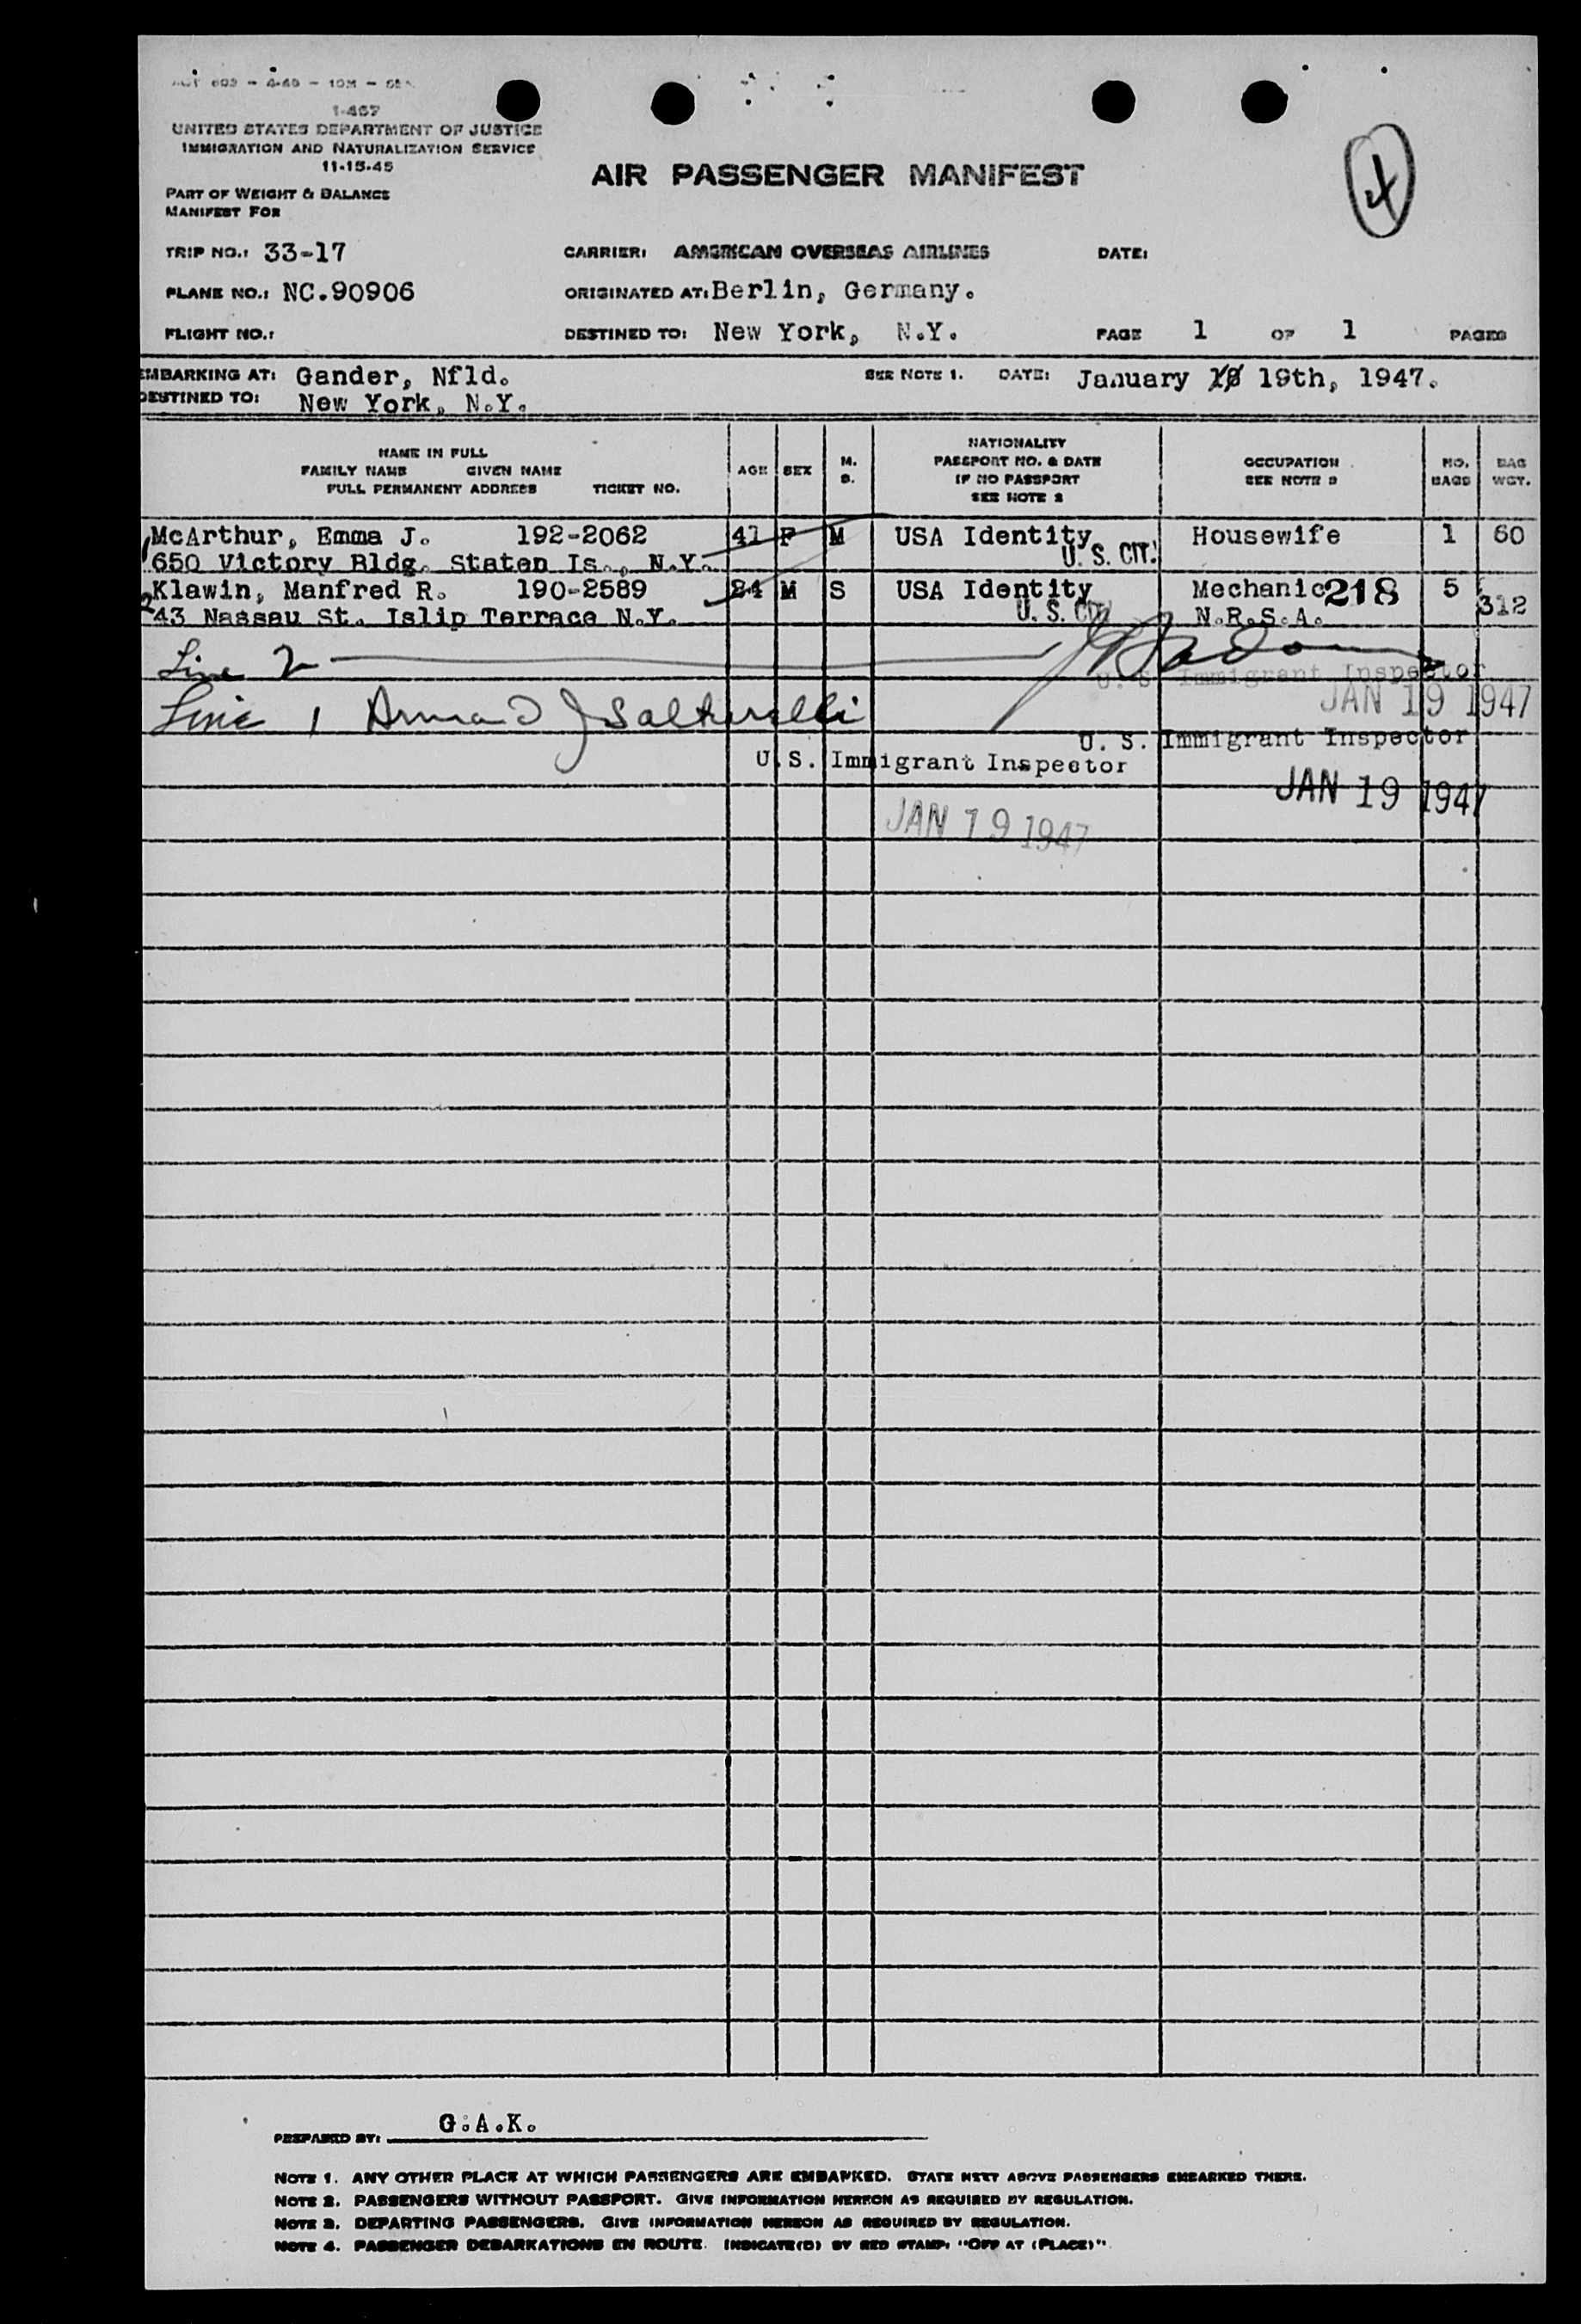 1-467
UNITED STATES DEPARTMENT OF JUSTICE
IMMIGRATION AND NATURALIZATION SERVICE
11-15-45
AIR PASSENGER MANIFEST
4
PART OF WEIGHT & BALANCE
MANIFEST FOR
TRIP NO.: 33-17 CARRIER: AMERICAN OVERSEAS AIRLINES DATE:
PLANE NO.: NC.90906 ORIGINATED AT: Berlin, Germany.
FLIGHT NO.: DESTINED TO: New York, N.Y. PAGE 1 OF 1 PAGES
EMBARKING AT: Gander, Nfld. SEE NOTE 1. DATE: January 18 19th, 1947.
DESTINED TO: New York, N.Y.
NAME IN FULL
FAMILY NAME GIVEN NAME
FULL PERMANENT ADDRESS TICKET NO.
AGE SEX
M.
S.
NATIONALITY
PASSPORT NO. & DATE
IF NO PASSPORT
SEE NOTE 2
OCCUPATION
SEE NOTE 3
NO.
BAGS
BAG
WGT.
1 McArthur, Emma J. 192-2062 41 F M USA Identity Housewife 1 60
650 Victory Bldg. Staten Is., N.Y. U. S. CIT.
2 Klawin, Manfred R. 190-2589 24 M S USA Identity Mechanic 218 5 312
43 Nassau St. Islip Terrace N.Y. U. S. CIT. N.R.S.A.
Line 2
U. S. Immigrant Inspector
JAN 19 1947
Line 1 Armand J Salturelli
U. S. Immigrant Inspector
U.S. Immigrant Inspector
JAN 19 1947
JAN 19 1947
PREPARED BY: G.A.K.
NOTE 1. ANY OTHER PLACE AT WHICH PASSENGERS ARE EMBARKED. STATE NEXT ABOVE PASSENGERS EMBARKED THERE.
NOTE 2. PASSENGERS WITHOUT PASSPORT. GIVE INFORMATION HEREON AS REQUIRED BY REGULATION.
NOTE 3. DEPARTING PASSENGERS. GIVE INFORMATION HEREON AS REQUIRED BY REGULATION.
NOTE 4. PASSENGER DEBARKATIONS EN ROUTE. INDICATE(D) BY RED STAMP: "OFF AT (PLACE)".